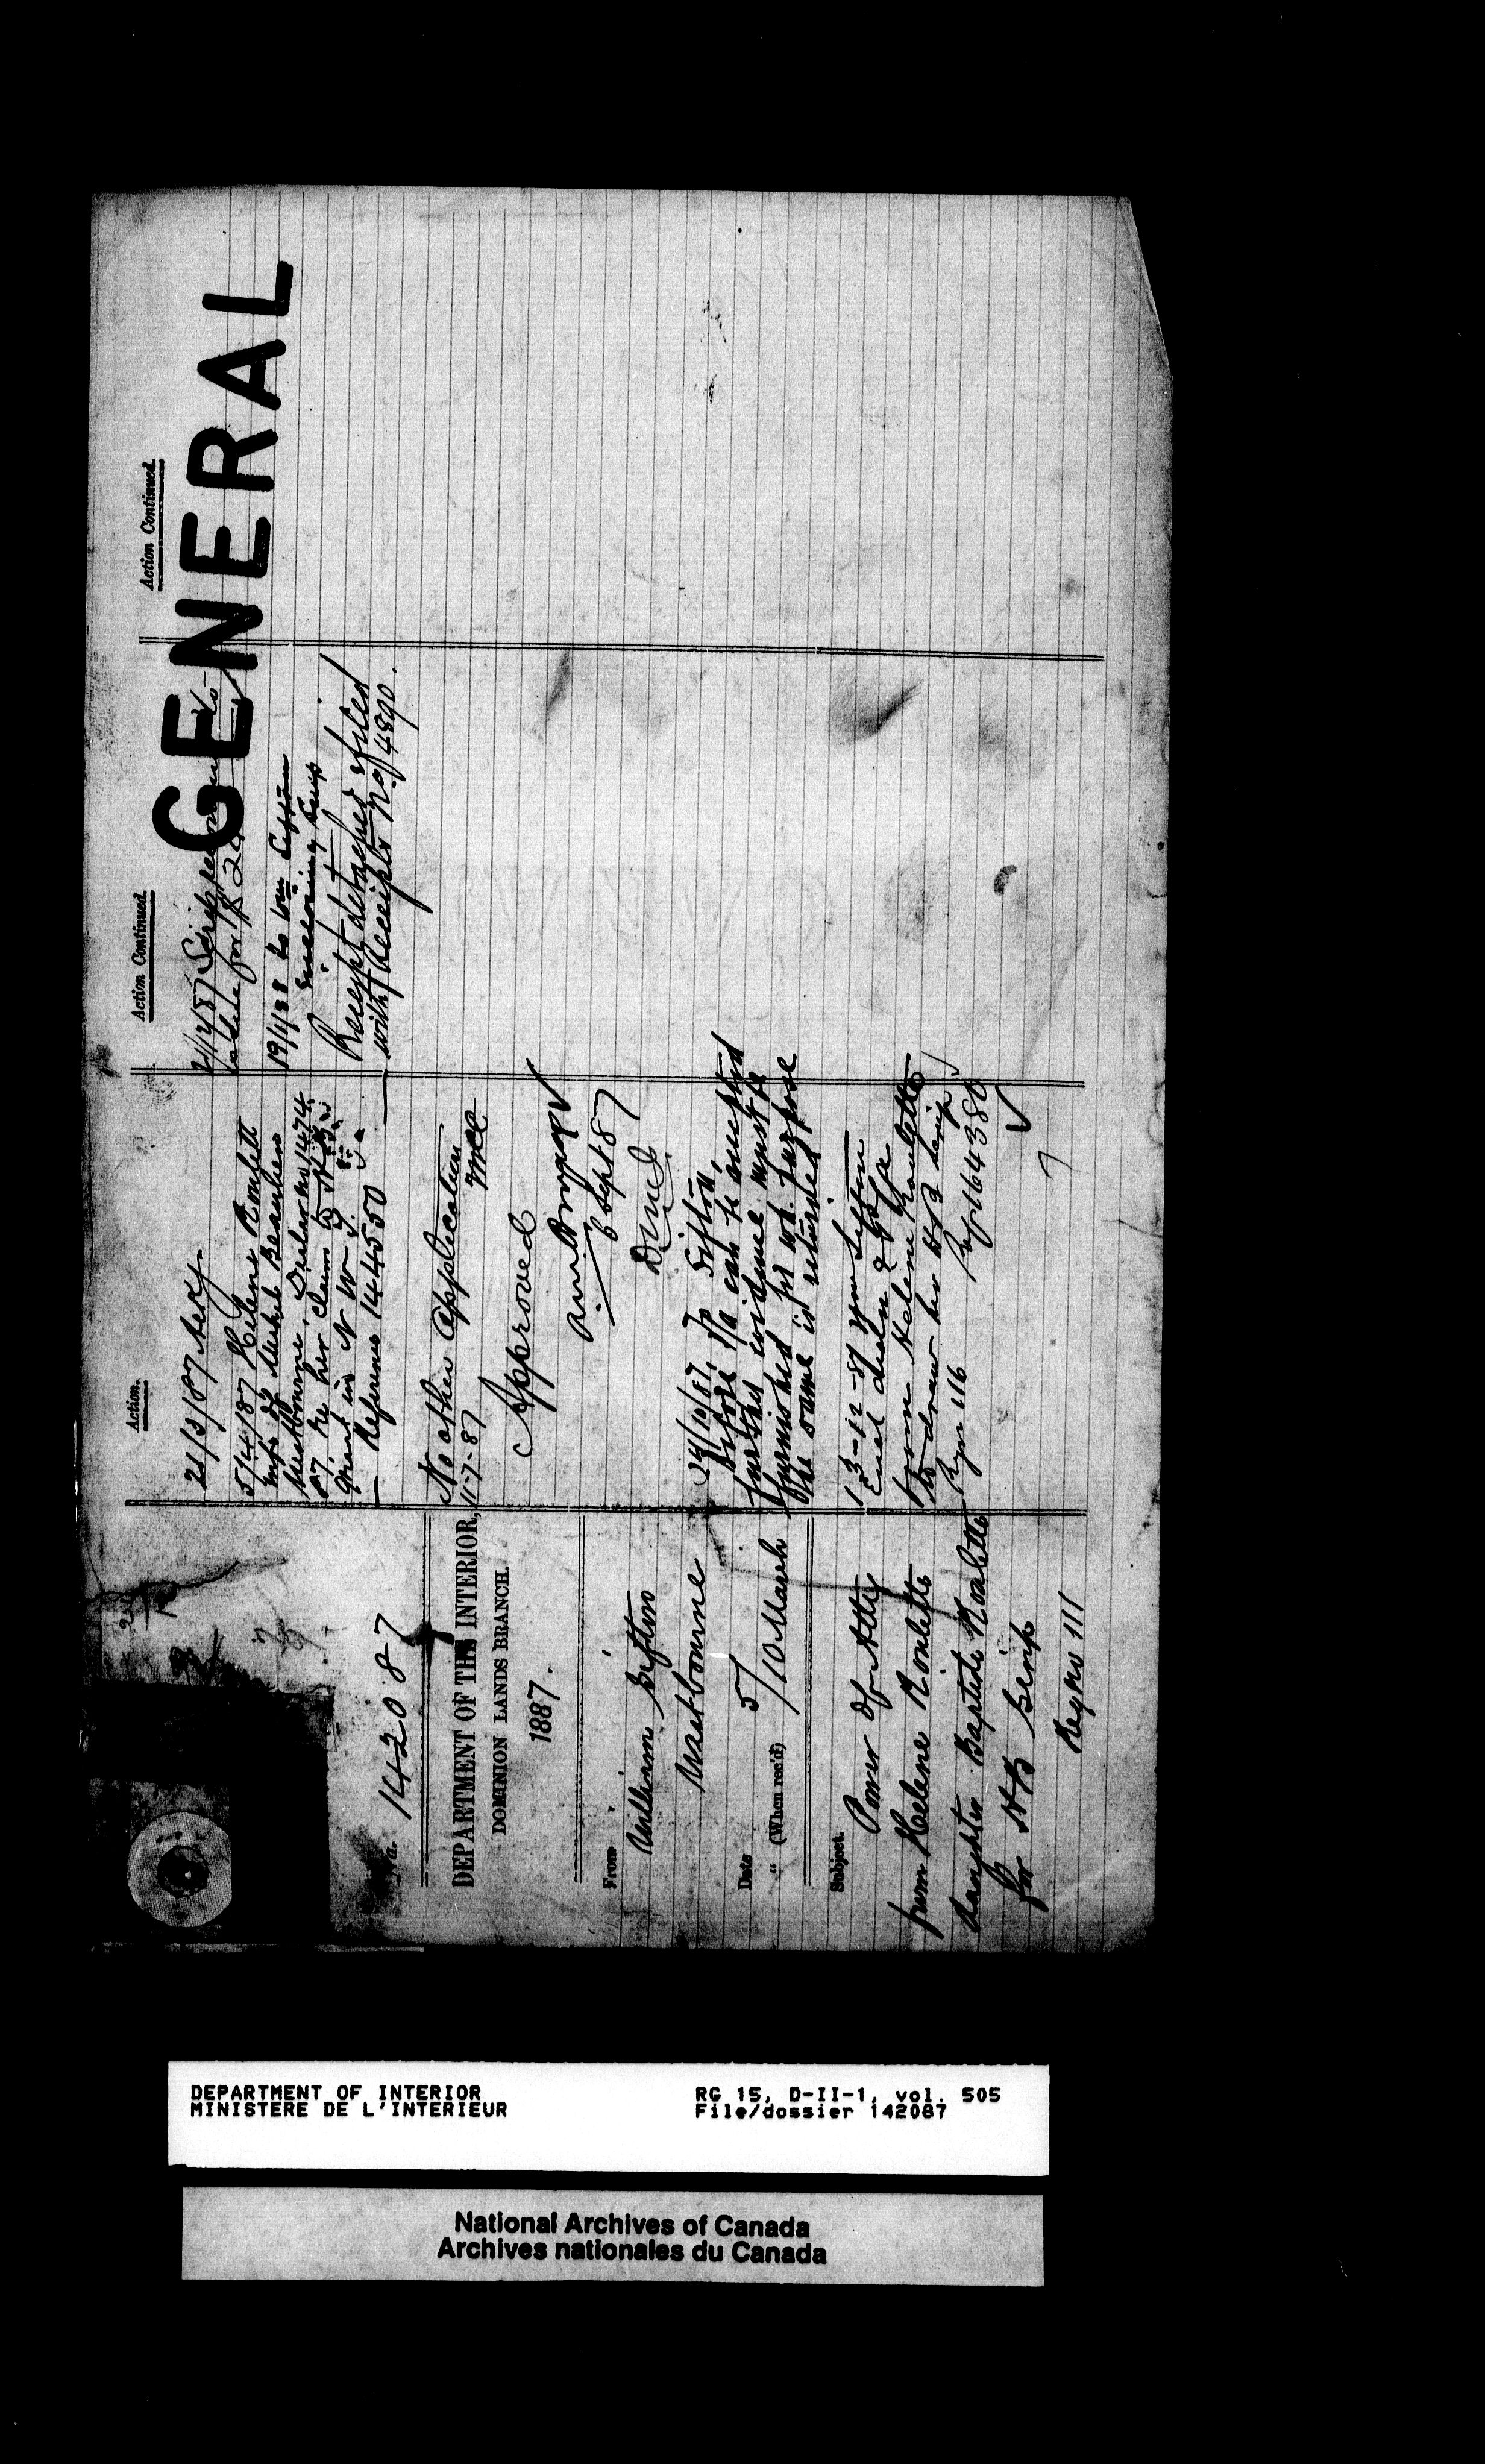 No. 142087
DEPARTMENT OF THE INTERIOR,
DOMINION LANDS BRANCH.
1887.
From
William Sifton
Westbourne
Date 5/
" (When rec'd) 10 March
Subject.
Power of Atty
from Helene Roulette
daughter Baptiste Roulette
for HB Scrip
Regro 111
Action.
21/3/87 Ack
5/4/87 Helene Roulett
wife of Michel Beauchen
Westbourne.
87 re her claim to H B
Grant in N W T.
Reference 144550
No other application
11-7-87
Approved
6 Sept 87
24/10/87. To Sifton,
before P/A can be accepted
further evidence must be
furnished for wh. purpose
the same is returned
13-12-87 Wm Sifton
Encl decln & P of A
from Helene Roulette
to draw her HB Scrip
Rgn 116 Ref 164380
Action Continued.
19/1/88 to Wm Sifton
enclosing Scrip
Receipt detached & filed
with Receipts No 4890.
Action Continued.
GENERAL
DEPARTMENT OF INTERIOR
MINISTERE DE L'INTERIEUR
RG 15, D-II-1, vol. 505
File/dossier 142087
National Archives of Canada
Archives nationales du Canada